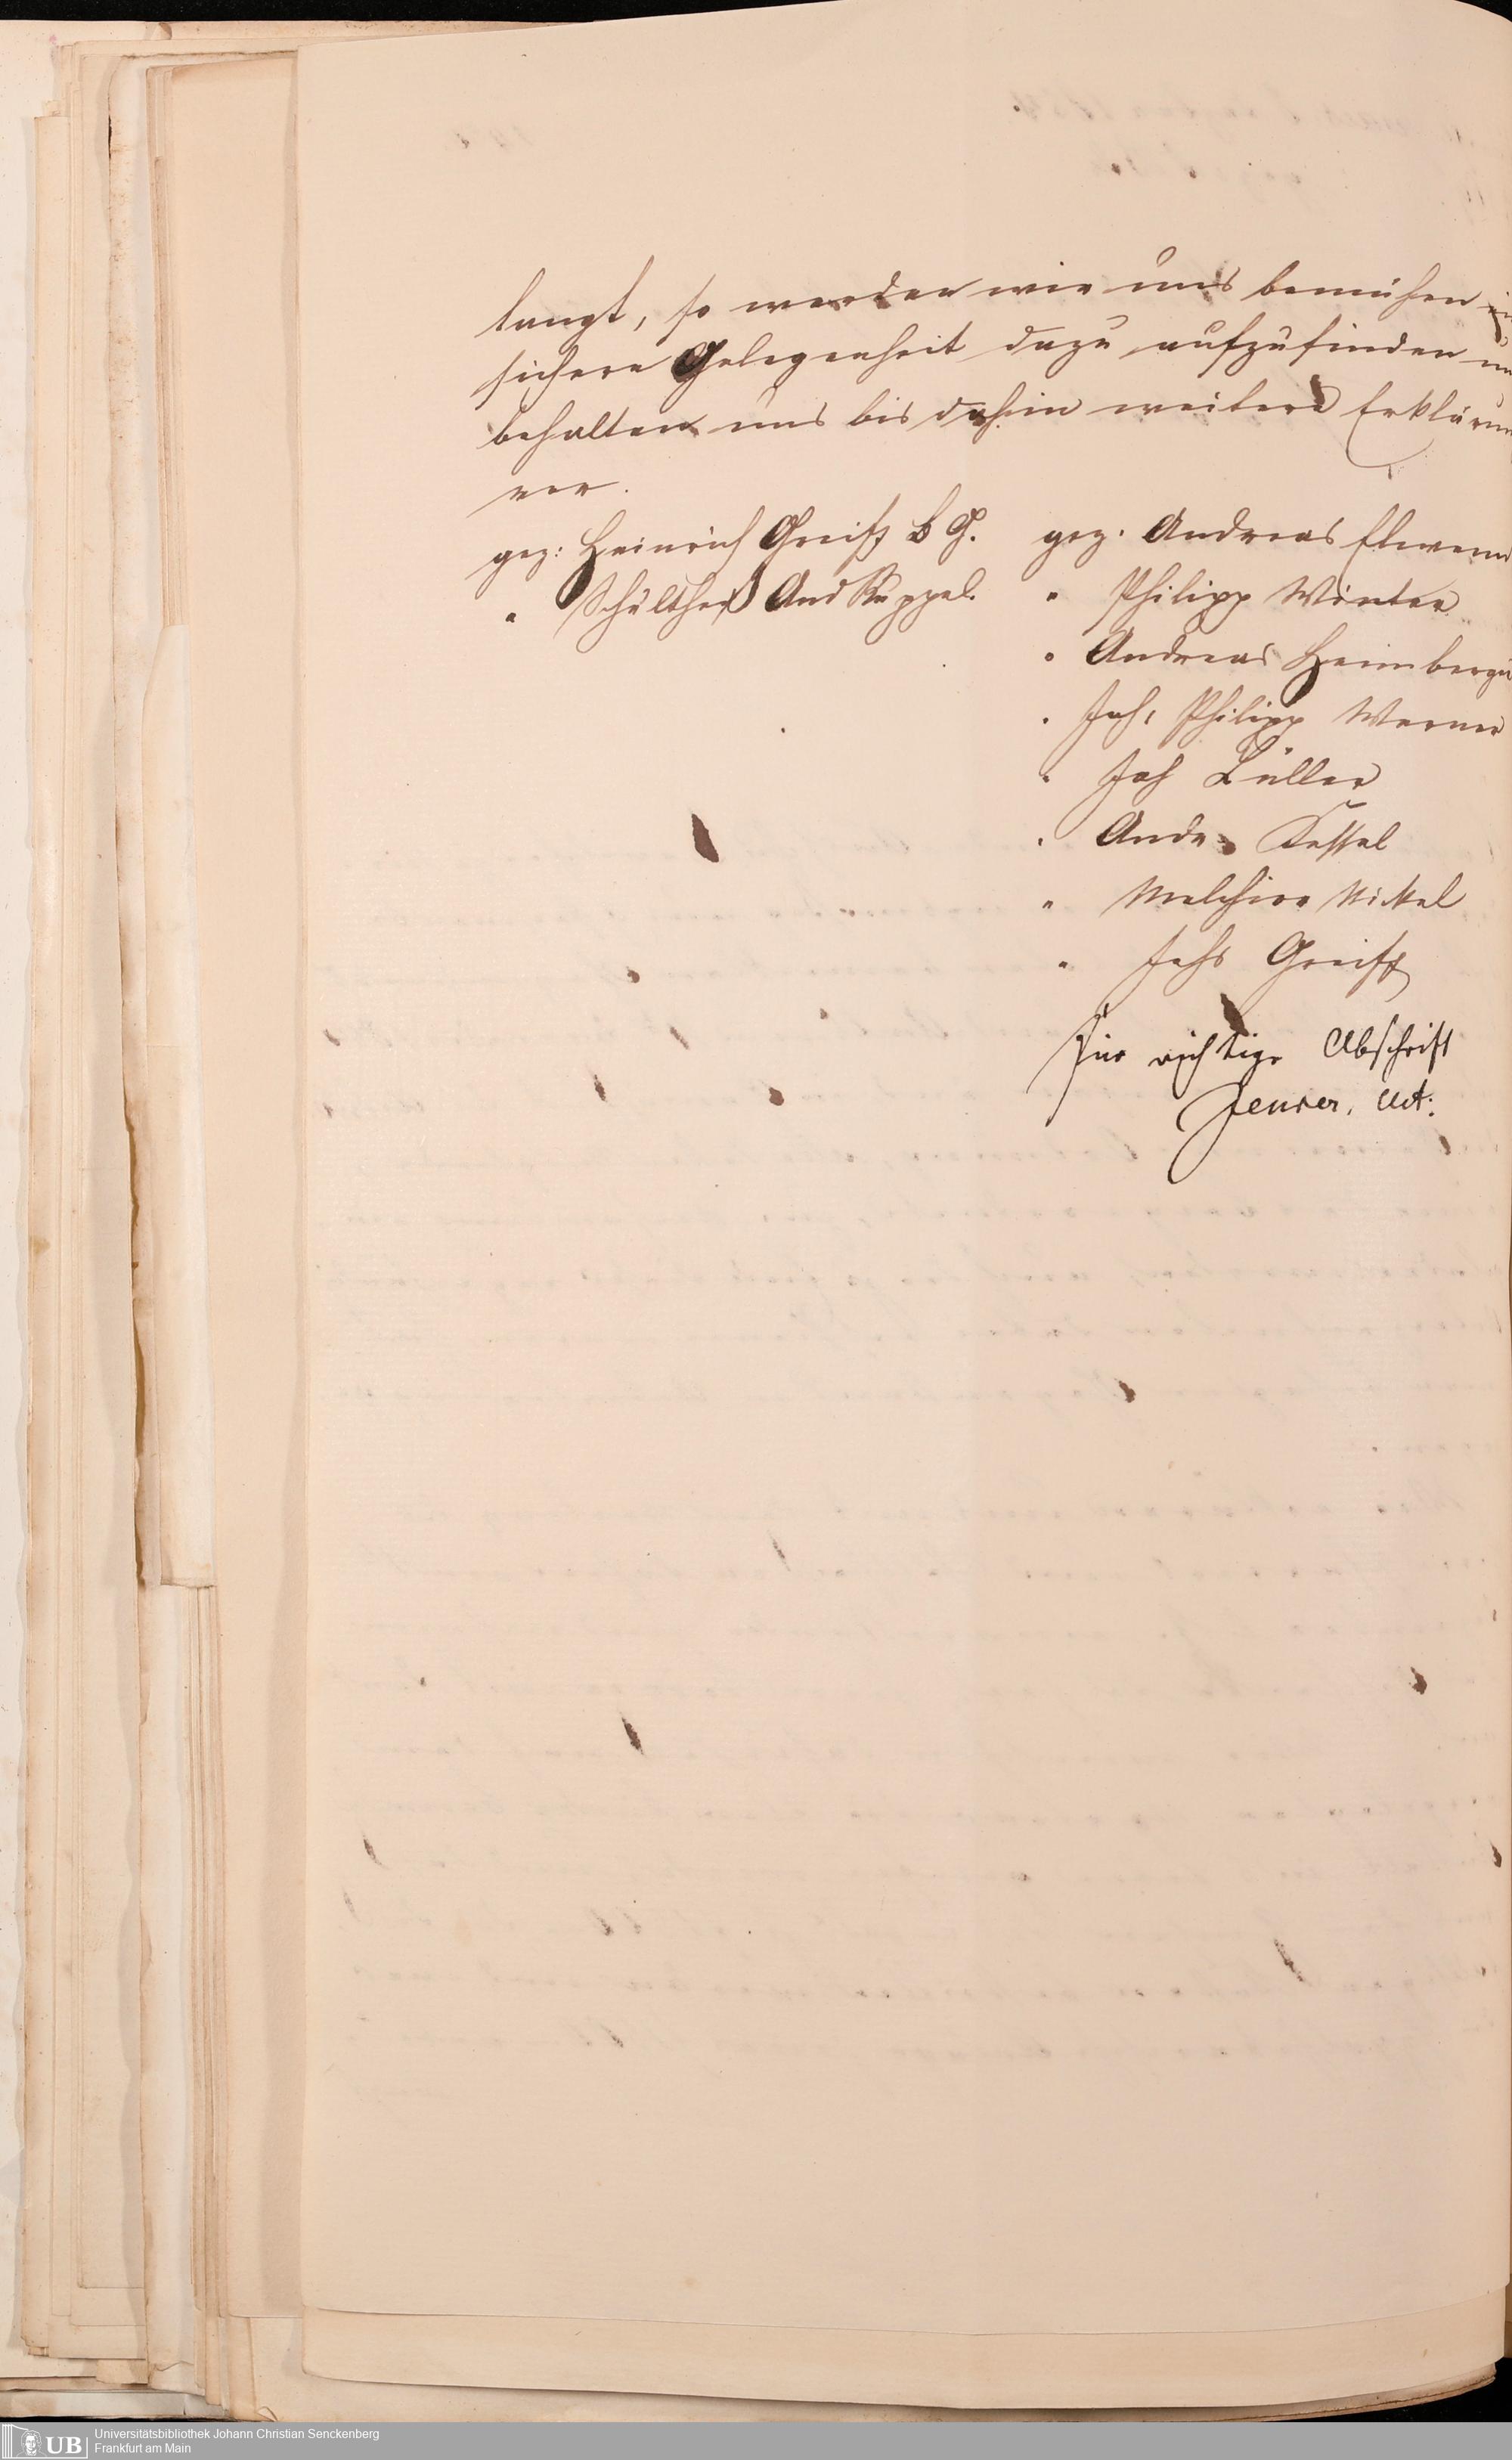 langt, so werden wir uns bemühen ein
sichere Gelegenheit dazu aufzufinden un
behalten uns bis dahin weitere Erklärun
vor.
gez: Heinrich Greiff B G.
" Schultheß And Ruppel.
gez. Andreas
" Philipp Winter
" Andreas Heimberge
" Joh. Philipp Werner
" Joh Züller
" Andr. Kessel
" Melchior Nickel
" Johs Greiff
Für richtige Abschrift
Act.
UB
Universitätsbibliothek Johann Christian Senckenberg
Frankfurt am Main